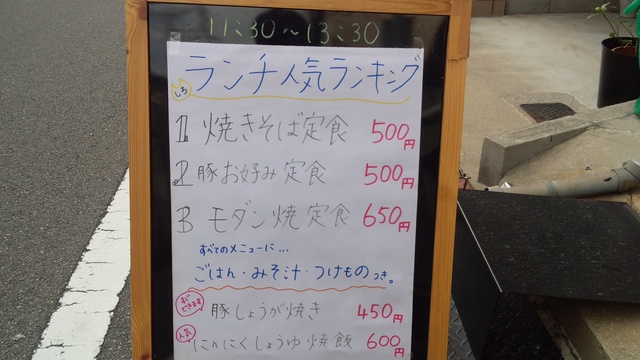 11:30～13:30
しろ ランチ人気ランキング
1 焼きそば定食 500円
2 豚お好み定食 500円
3 モダン焼定食 650円
すべてのメニューに…
ごはん・みそ汁・つけものつき。
すぐできます 豚しょうが焼き 450円
人気 にんにくしょうゆ焼飯 600円